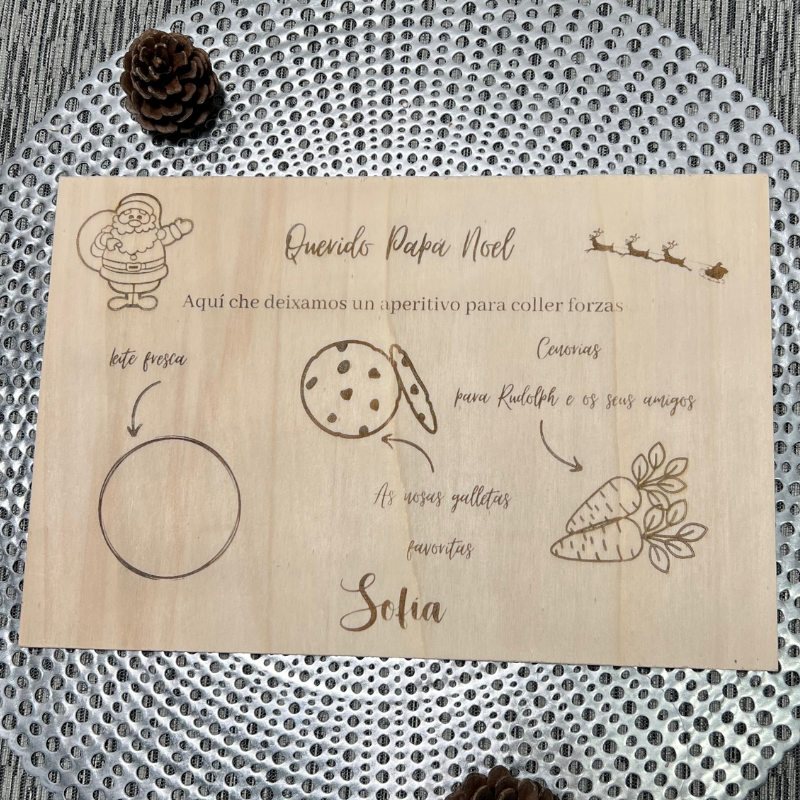 Querido Papá Noel
Aquí che deixamos un aperitivo para coller forzas
leite fresca
Cenorias
para Rudolph e os seus amigos
As nosas galletas
favoritas
Sofia